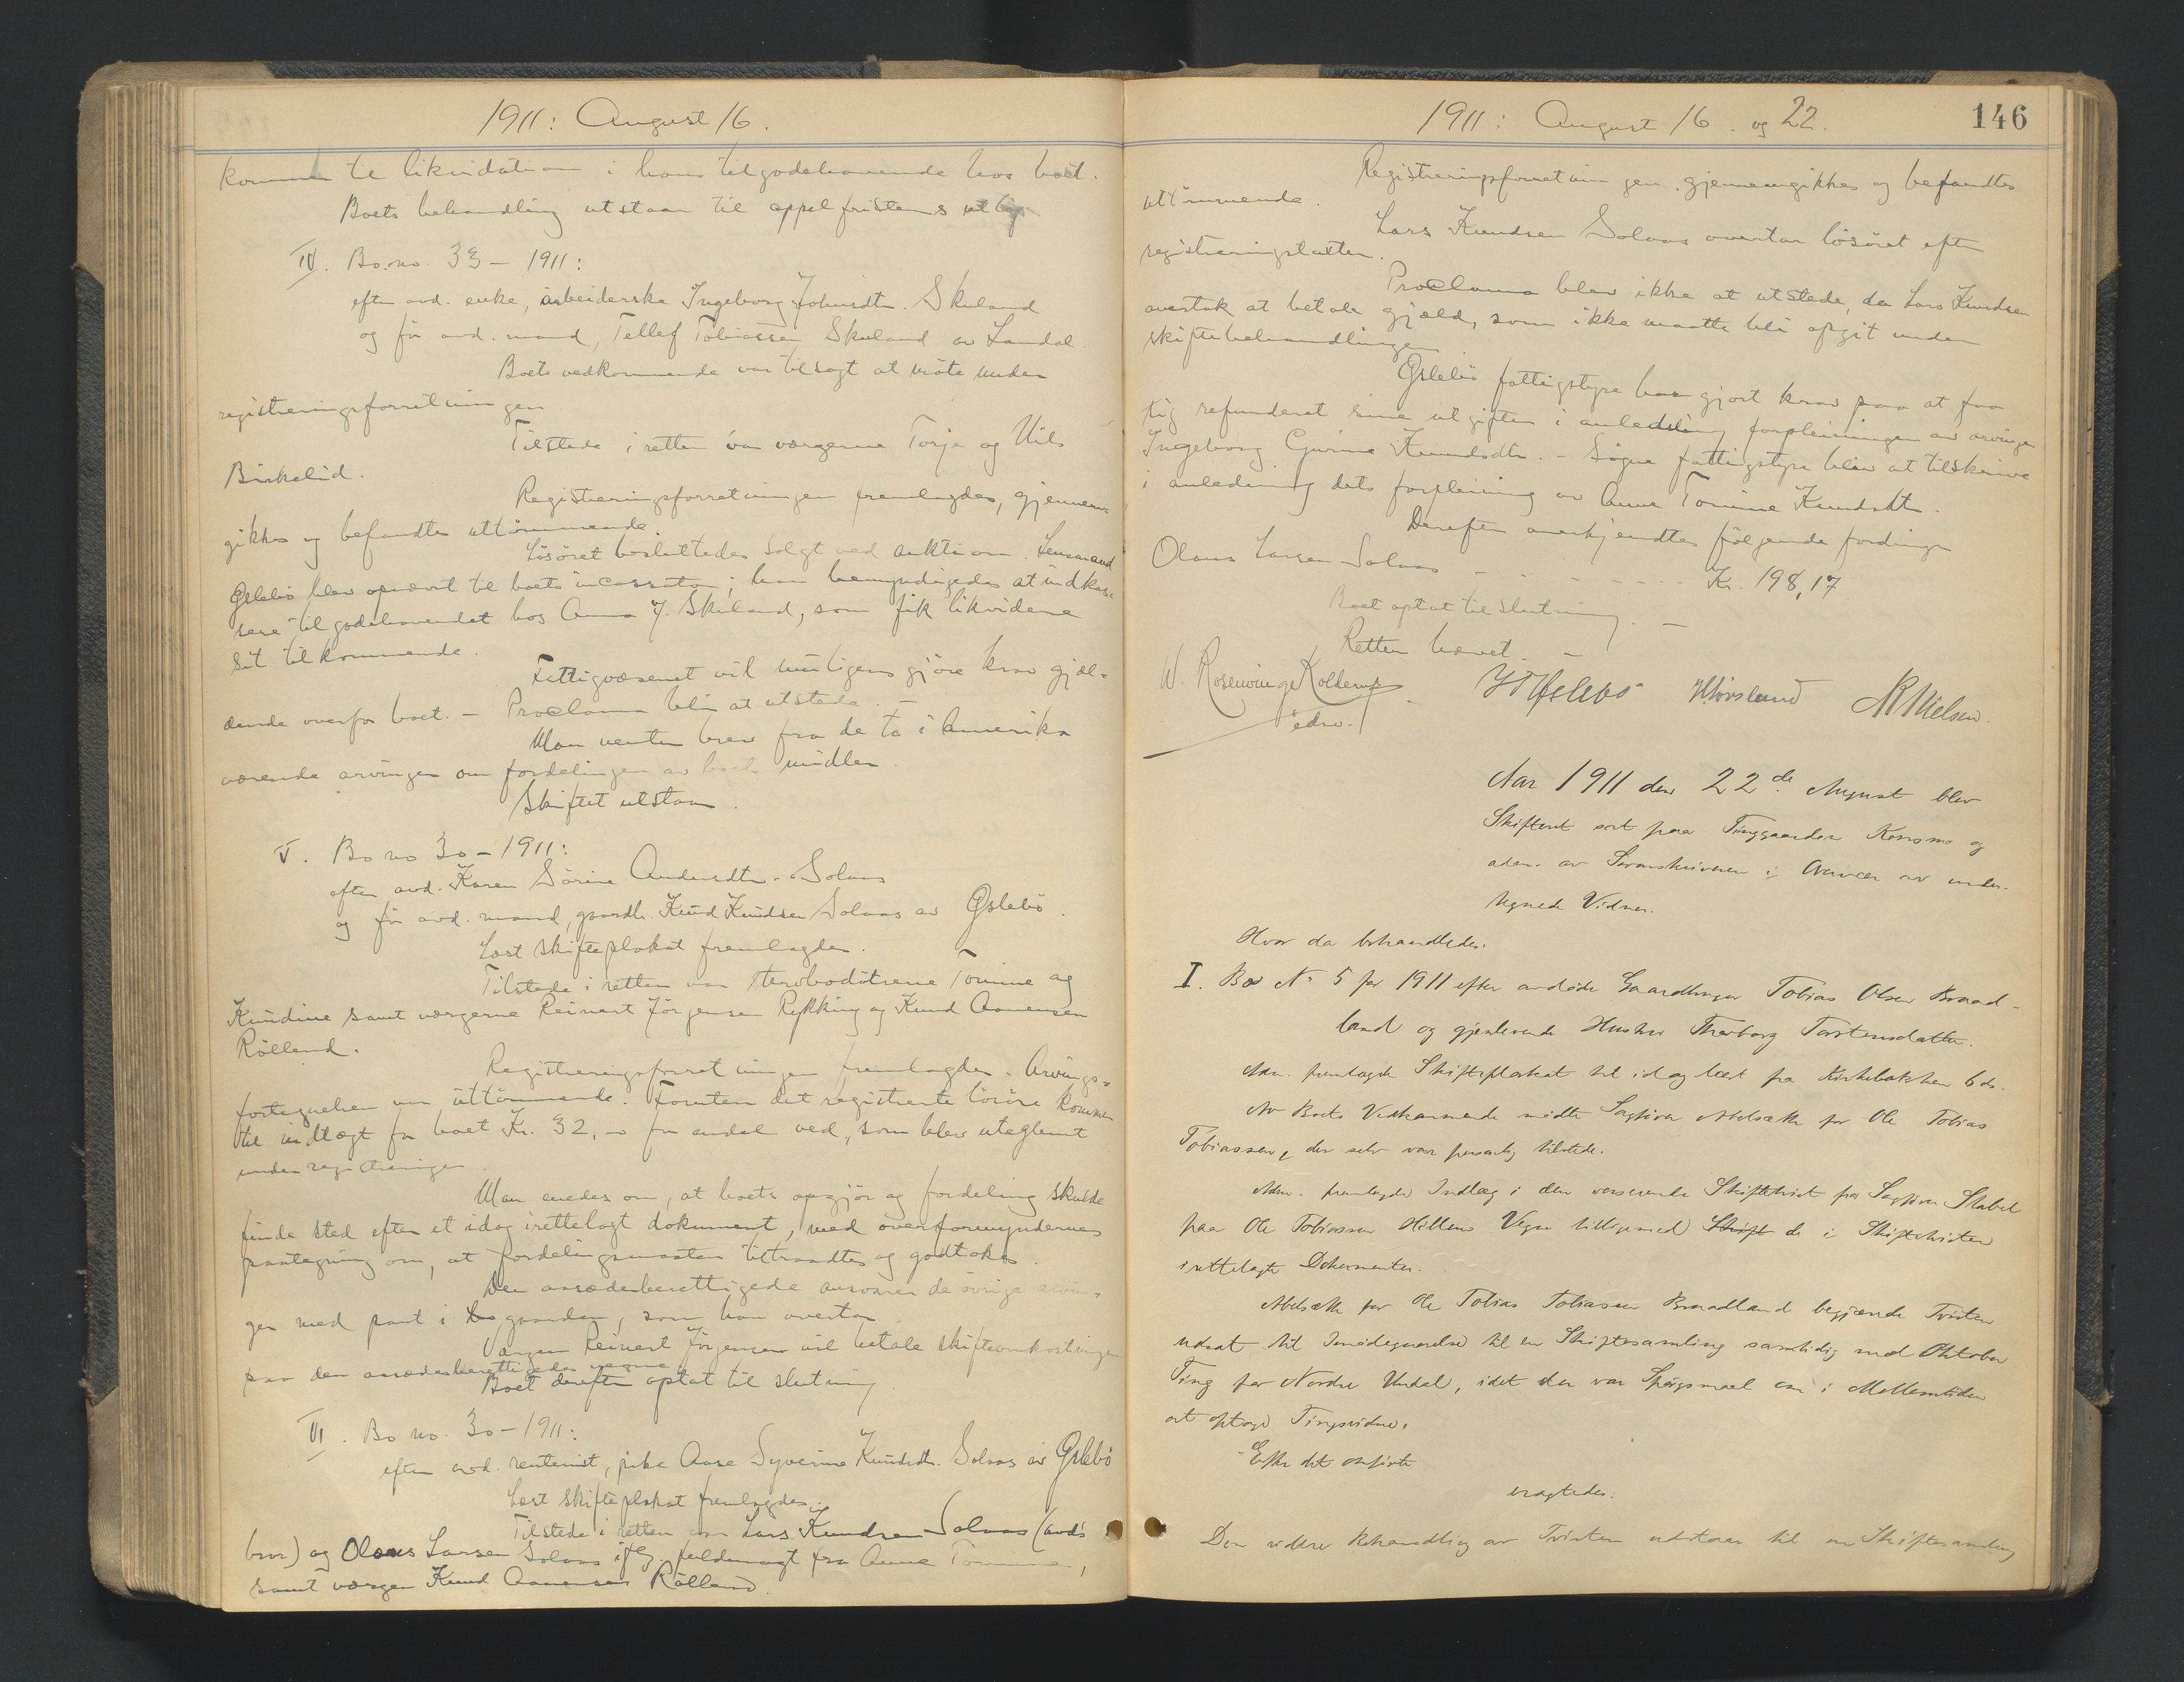 1911: August 16.
kommer til likvidation i hans tilgodehavende hos boet.
Boets behandling utstaar til appelfristens utløp
IV. Bo no. 33 – 1911:
efter avd. enke, arbeiderske Ingeborg Johnsdtr. Skuland
og før avd. mand, Tellef Tobiassen Skuland av Laudal.
Boets vedkommende var tilsagt at møte under
registreringsforretningen
Tilstede i retten var værgerne Torje og Nils
Birkelid.
Registreringsforretningen fremlagdes, gjennem-
gikkes og befandtes uttømmende.
Løsøret besluttedes solgt ved auktion. Lensmand
Øslebø blev opnævnt til boets incassator; han bemyndigedes at indkas-
sere tilgodehavendet hos Anna J. Skuland, som fik likvidere
sit tilkommende.
Fattigvæsenet vil muligens gjøre krav gjæl-
dende overfor boet. – Proclama blir at utstede. –
Man venter brev fra de to i Amerika
værende arvinger om fordelingen av boets midler.
Skiftet utstaar.
V. Bo no 30 – 1911:
efter avd. Karen Sørine Andersdtr. Solaas
og før avd. mand, gaardbr. Knud Knudsen Solaas av Øslebø.
Læst skifteplakat fremlagdes.
Tilstede i retten var stervbodøtrene Tomine og
Knudine samt værgerne Reinert Jørgensen Røkking og Knud Aanensen
Rølland.
Registreringsforretningen fremlagdes. Arvings-
fortegnelsen var uttømmende. Foruten det registrerte løsøre kommer
til indtægt for boet Kr. 32, – for endel ved, som blev uteglemt
under registreringen.
Man enedes om, at boets opgjør og fordeling skulde
finde sted efter et idag irettelagt dokument, med overformyndernes
paategning om, at fordelingsmaaten tiltraadtes og godtokes.
Den aasædesberettigede ansvarer de øvrige arvin-
ger med pant i gaarden, som han overtar
Værgen Reinert Jørgensen vil betale skifteomkostningen
paa den aasædesberettigedes vegne
Boet derefter optat til slutning
VI. Bo no. 30 – 1911:
efter avd. rentenist, pike Aase Syverine Knudsdtr. Solaas av Øslebø
Læst skifteplakat fremlagdes.
Tilstede i retten var Lars Knudsen Solaas (avd's
bror) og Olaus Larsen Solaas iflg. fuldmagt fra Anne Tomine,
samt værgen Knud Aanensen Rølland.
1911: August 16. og 22.
146
Registreringsforretningen gjennemgikkes og befandtes
uttømmende.
Lars Knudsen Solaas overtar løsøret efter
registreringstaksten.
Proclama blev ikke at utstede, da Lars Knudsen
overtok at betale gjæld, som ikke maatte bli opgit under
skiftebehandlingen
Øslebø fattigstyre har gjort krav paa at faa
sig refunderet sine utgifter i anledning forpleiningen av arvingen
Ingeborg Gurine Knudsdtr. – Søgne fattigstyre blir at tilskrive
i anledning dets forpleining av Anne Tomine Knudsdtr.
Derefter anerkjendtes følgende fordringer
Olaus Larsen Solaas - - - - - - - Kr. 198,17
Boet optat til slutning. –
Retten hævet. –
W. Rosenvinge Kolderup
edsv.
Øslebø Hovsland N Nielsen.
Aar 1911 den 22de August blev
Skifteret sat paa Tinggaarden Konsmo og
adm. av Sorenskriveren i Overvær av under-
tegnede Vidner.
Hvor da behandledes.
I. Bo No 5 for 1911 efter avdøde Gaardbruger Tobias Olsen Braad-
land og gjenlevende Hustru Thorborg Torstensdatter.
Adm. fremlagde Skifteplakat til idag læst paa Kirkebakken 6 ds.
Av Boets Vedkommende mødte Sagfører Abelsæth for Ole Tobias
Tobiassen, der selv var personlig tilstede.
Adm. fremlagde Indlæg i den verserende Skiftetvist fra Sagfører Stabel
paa Ole Tobiassen Hillens Vegne tilligemed de i Skiftetvisten
irettelagte Dokumenter.
Abelsæth for Ole Tobias Tobiassen Braadland begjærede Tvisten
udsat til Imødegaaelse til en Skiftesamling samtidig med Oktober
Ting for Nordre Undal, idet der var Spørgsmaal om i Mellemtiden
at optage Tingsvidne.
Efter det anførte
eragtedes:
Den videre Behandling av Tvisten utstaar til en Skiftesamling